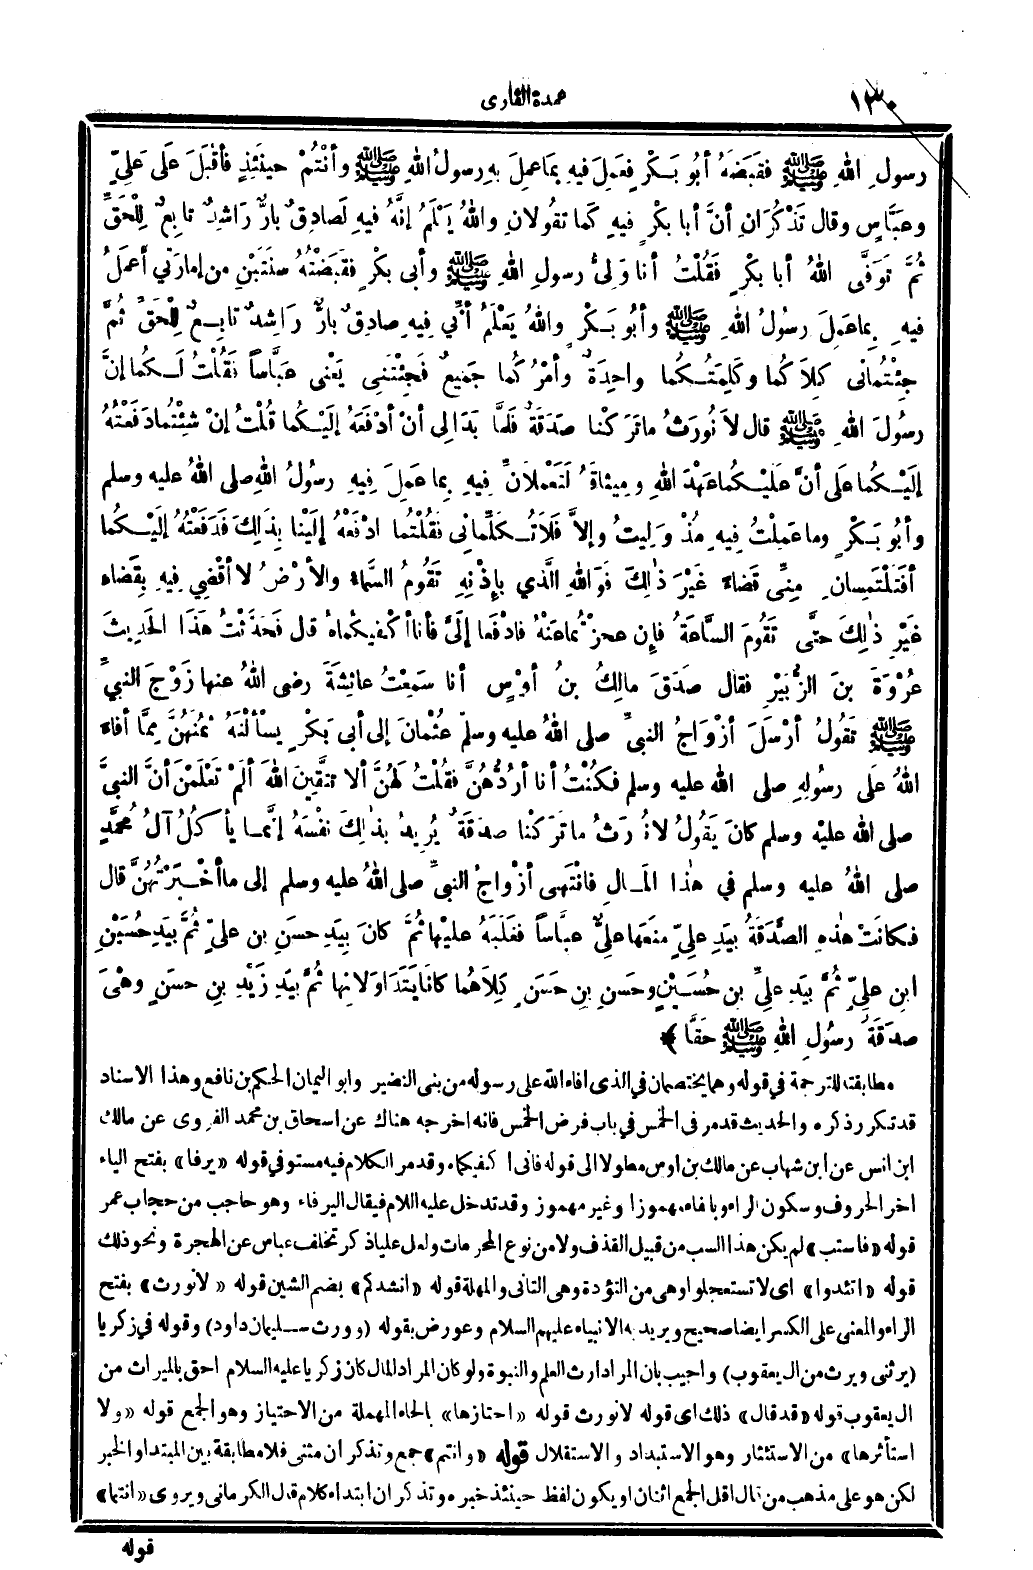 ١٣٠
عمدة القارى
رسولِ اللهِ ﷺ فقَبَضَهُ أبُو بَكْرٍ فعَمِلَ فيهِ بِمَا عمِلَ بهِ رسولُ اللهِ ﷺ وأنْتُمْ حينَئِذٍ فأقْبَلَ عَلَى عَلِيٍّ
وعبَّاسٍ وقال تَذْكُرَانِ أنَّ أبا بكْرٍ فيهِ كَما تقُولانِ واللهُ يَعْلَمُ إنَّهُ فيهِ لَصادِقٌ بارٌّ رَاشِدٌ تابِعٌ لِلْحَقِّ
ثُمَّ تَوَفَّى اللهُ أبا بكرٍ فقُلْتُ أنا وَلِيُّ رسولِ اللهِ ﷺ وأبى بكرٍ فقبَضْتُهُ سنَتَيْنِ مِن إمارَتي أعمَلُ
فيهِ بِماعَمِلَ رسُولُ اللهِ ﷺ وأبُو بَكْرٍ واللهُ يَعْلَمُ أنِّي فِيهِ صادِقٌ بارٌّ رَاشِدٌ تابِعٌ لِلْحَقِّ ثُمَّ
جِئْتُمانى كِلاَ كُما وكَلِمَتُكُما واحِدَةٌ وأمْرُ كُما جَمِيعٌ فَجِئْتَنِى يَعْنى عَبَّاساً فَقُلْتُ لَكُما إنَّ
رسُولَ اللهِ ﷺ قال لاَ نُورَثُ ماتَرَكْنا صدَقَةٌ فلَمَّا بَدَالِى أنْ أدْفَعَهُ إلَيْكُما قُلْتُ إنْ شِئْتُمادَفَعْتُهُ
إلَيْكُما علَى أنَّ علَيْكُماعَهْدَ اللهِ ومِيثاقَهُ لَتَعْمَلاَنِّ فِيهِ بِما عَمِلَ فِيهِ رسُولُ اللهِ صلى اللهُ عليه وسلم
وأبُو بَكْرٍ وما عَمِلْتُ فيهِ مُذْ وَلِيتُ وإلاَّ فَلاَتُكَلِّمانى فقُلْتُما ادْفَعْهُ إلَيْنا بِذَلِكَ فَدَفَعْتُهُ إلَيْكُما
أفَتَلْتَمِسانِ مِنِّى قَضاءً غَيْرَ ذَلِكَ فَوَاللهِ الَّذي بإِذْنِهِ تَقُومُ السَّماءُ والأرْضُ لاَ أقْضِي فِيهِ بِقَضاءٍ
غَيْرِ ذَلِكَ حتَّى تَقُومَ السَّاعَةُ فإن عجزْتُماعَنْهُ فادْفَعا إلَيَّ فأناأ كْفِيكُماهُ قال فَحَدَّثْتُ هَذَا الحَدِيثَ
عُرْوَةَ بنَ الزُّبَيْرِ فقال صدَقَ مالِكُ بنُ أوْسٍ أنا سَمِعْتُ عائِشَةَ رضى اللهُ عنها زَوْجَ النبيِّ
ﷺ تَقُولُ أرْسَلَ أزْوَاجُ النبيِّ صلى اللهُ عليه وسلم عُثْمانَ إلى أبى بَكْرٍ يسْألْنَهُ ثُمُنَهُنَّ مِمَّا أفاءَ
اللهُ عَلَى رسُولِهِ صلى اللهُ عليه وسلم فكُنْتُ أنا أرُدُّهُنَّ فقُلْتُ لَهُنَّ ألا تتَّقِينَ اللهَ ألَمْ تَعْلَمْنَ أنَّ النبيَّ
صلى الله عليْه وسلم كانَ يَقُولُ لانُورَثُ ما تَرَكْنا صدَقَةٌ يُرِيدُ بذَلِكَ نفْسَهُ إنَّما يأ كُلُ آلُ مُحمَّدٍ
صلى اللهُ عليه وسلم في هذَا المَالِ فانْتَهى أزْواجُ النبيِّ صلى اللهُ عليه وسلم إلى ماأخْبَرَتْهُنَّ قال
فكانَتْ هذِهِ الصَّدَقَةُ بِيَدِ علِيٍّ منَعَها علِيٌّ عبَّاساً فغَلَبَهُ عليْها ثُمَّ كانَ بِيَدِ حسَنِ بنِ علِيٍّ ثُمَّ بِيَدِ حُسَيْنِ
ابنِ علِيٍّ ثُمَّ بيَدِ علِيِّ بنِ حُسَيْنٍ وحسَنِ بنِ حَسَنٍ كِلاَهُما كانَا يَتَدَاوَلانِها ثُمَّ بيَدِ زَيْدِ بنِ حسَنٍ وهْىَ
صدَقَةُ رسُولِ اللهِ ﷺ حَقًّا ﴾
مطابقته للترجمة في قوله وهما يختصمان في الذى افاء الله على رسوله من بنى النضير وابو اليمان الحكم بن نافع وهذا الاسناد
قد تكرر ذكره والحديث قد مر فى الخمس في باب فرض الخمس فانه اخرجه هناك عن اسحاق بن محمد الفروى عن مالك
ابن انس عن ابن شهاب عن مالك بن اوس مطولا الى قوله فانى ا كفيكماه وقد مر الكلام فيه مستوفى قوله «يرفا» بفتح الياء
اخر الحروف وسكون الراء وبالفاء مهموزا وغير مهموز وقد تدخل عليه اللام فيقال اليرفاء وهو حاجب من حجاب عمر
قوله «فاستب» لم يكن هذا السب من قبيل القذف ولا من نوع المحرمات ولعل عليا ذكر تخلف عباس عن الهجرة ونحو ذلك
قوله «اتئدوا» اى لا تستعجلوا وهى من التؤدة وهى التانى والمهلة قوله «انشدكم» بضم الشين قوله «لانورث» بفتح
الراء والمعنى على الكسر ايضا صحيح ويريد به الانبياء عليهم السلام وعورض بقوله (وورث سليمان داود) وقوله في زكريا
(يرثنى ويرث من ال يعقوب) واجيب بان المراد ارث العلم والنبوة ولو كان المراد المال كان زكريا عليه السلام احق بالميراث من
ال يعقوب قوله «قد قال» ذلك اى قوله لانورث قوله «احتازها» بالحاء المهملة من الاحتياز وهو الجمع قوله «ولا
استأثرها» من الاستئثار وهو الاستبداد والاستقلال قوله «وانتم» جمع وتذكران مثنى فلا مطابقة بين المبتدا والخبر
لكن هو على مذهب من قال اقل الجمع اثنان او يكون لفظ حينئذ خبره وتذكران ابتداء كلام قال الكرمانى ويروى «انتما»
قوله